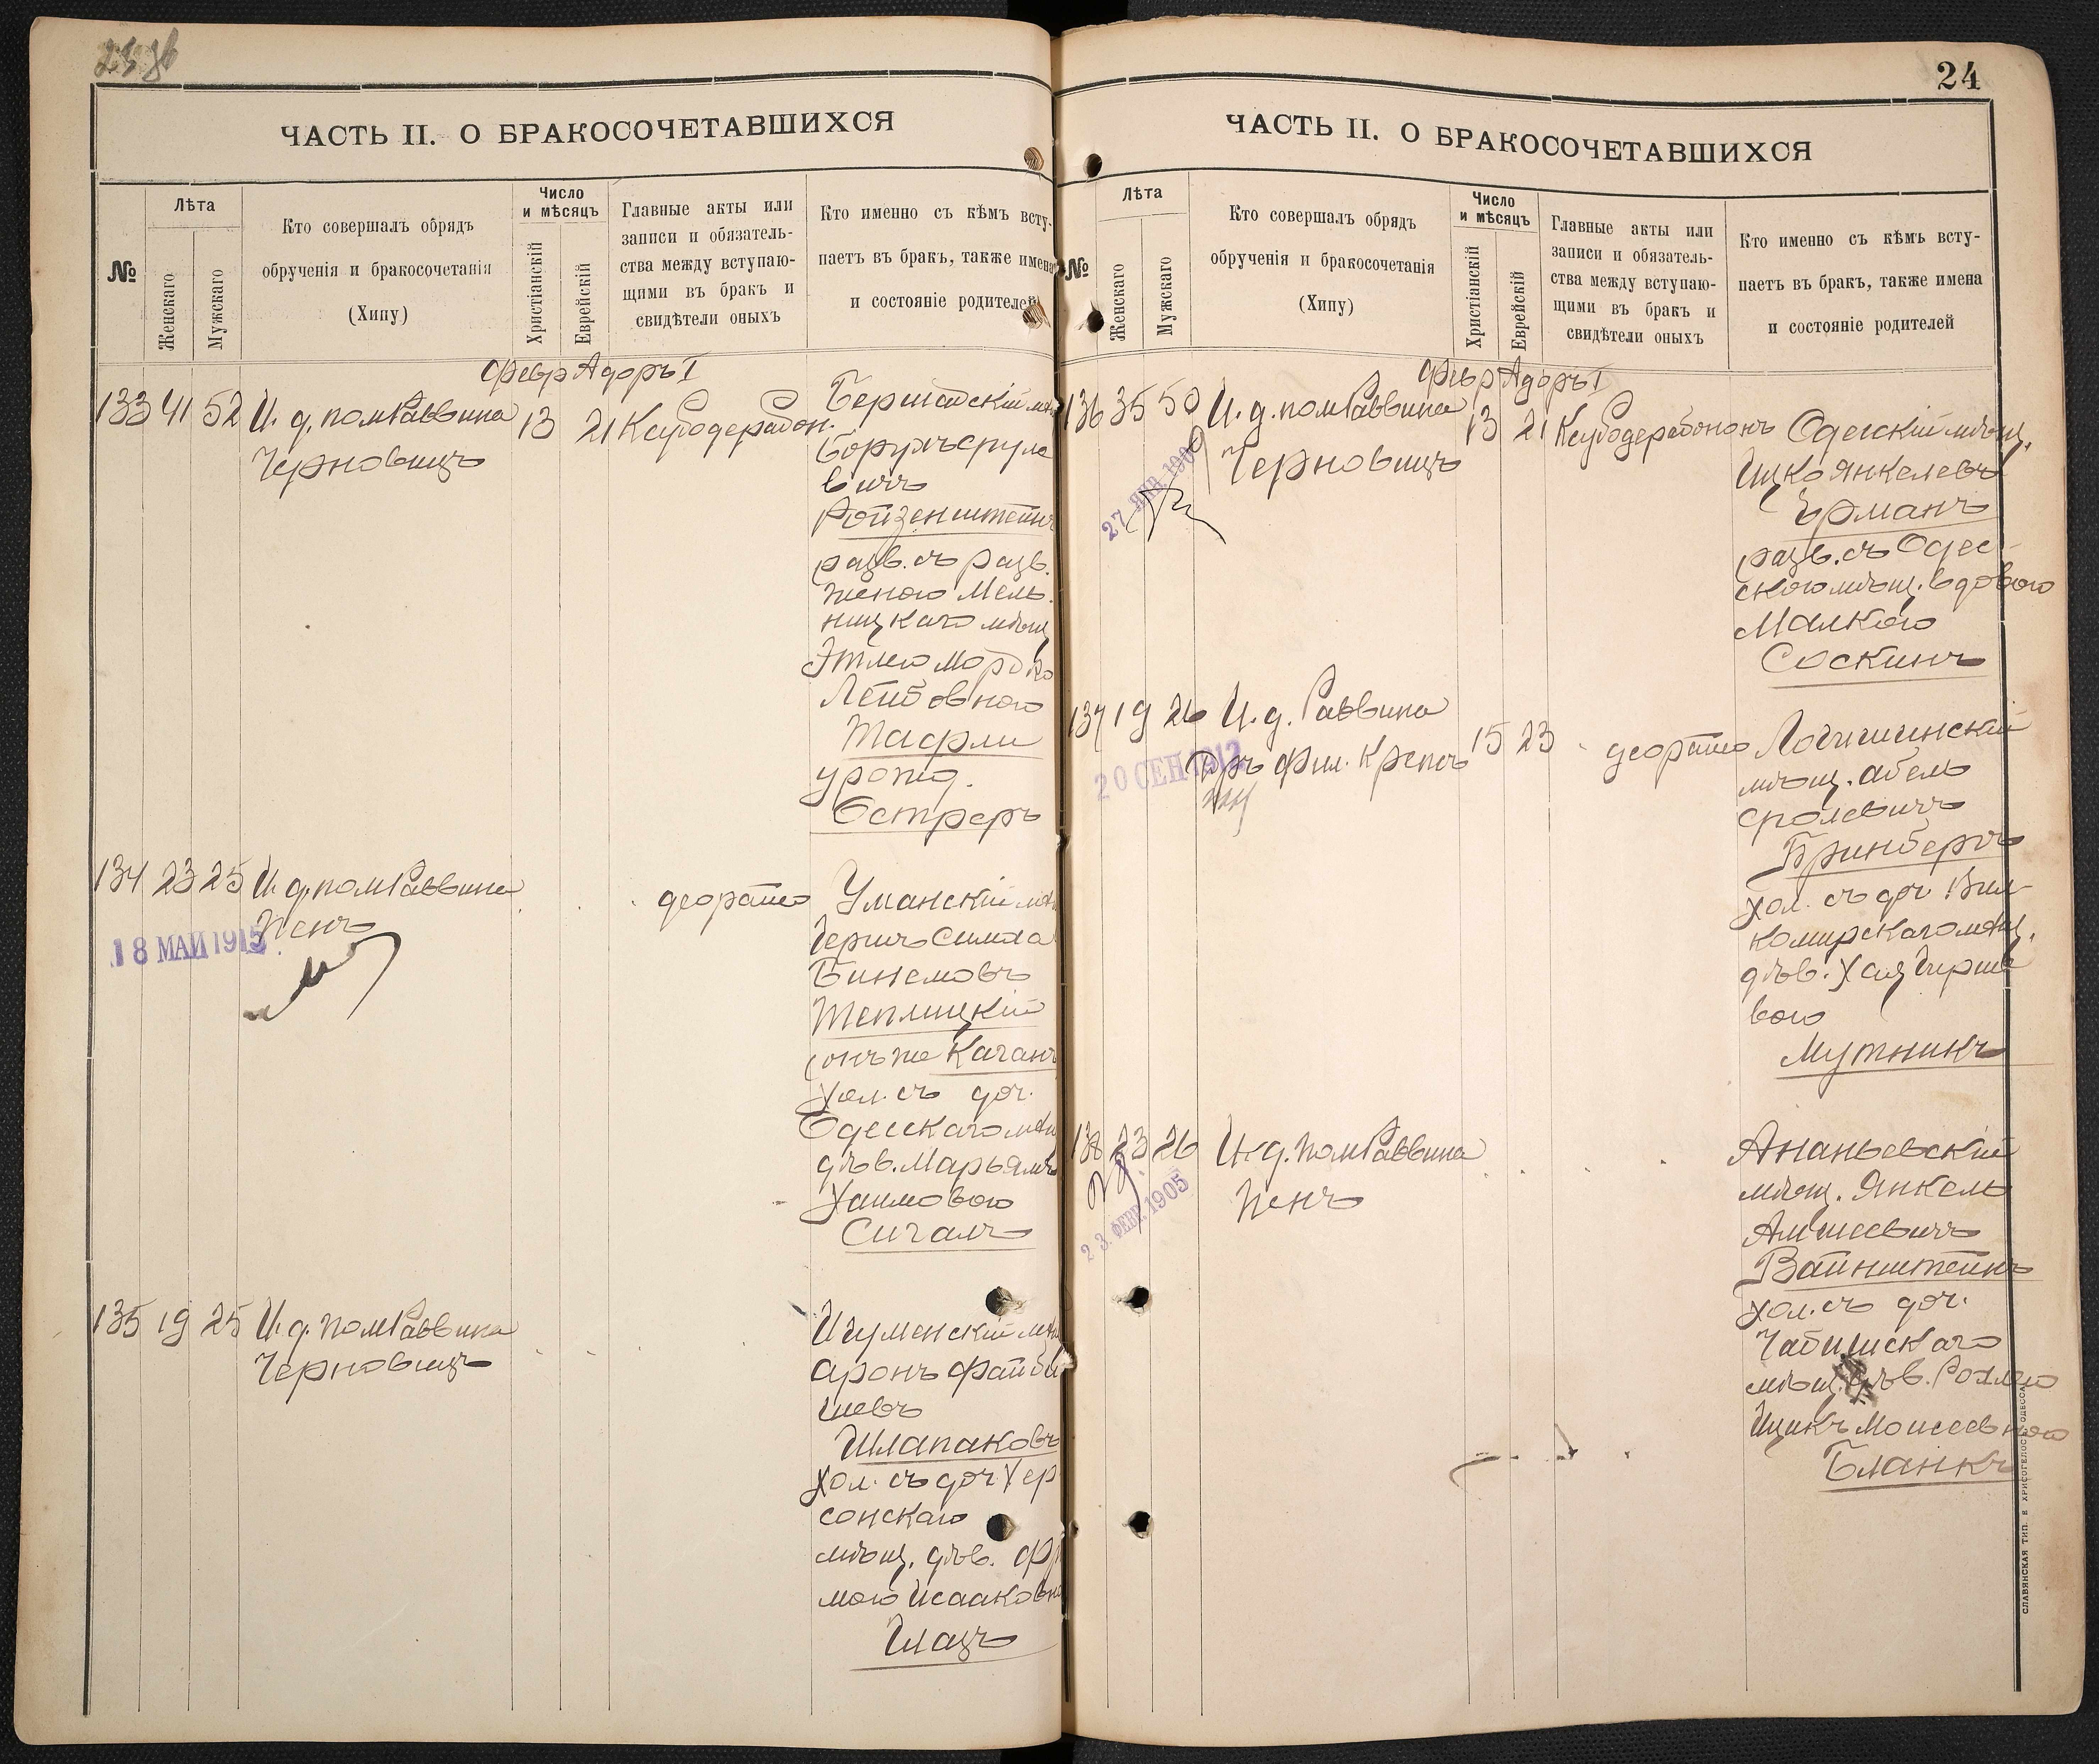 ЧАСТЬ II. О БРАКОСОЧЕТАВШИХСЯ
№
Лѣта
Женскаго
Мужскаго
Кто совершалъ обрядъ
обрученія и бракосочетанія
(Хипу)
Число
и мѣсяцъ
Христіанскій
Еврейскій
Главные акты или
записи и обязатель-
ства между вступаю-
щими въ бракъ и
свидѣтели оныхъ
Кто именно съ кѣмъ всту-
паетъ въ бракъ, также имена
и состояніе родителей
Февр Адоръ I
133 41 52 И. д. помРаввина 13 21
Черновицъ
Бершадскій
Ройзенштейнъ
разв. съ разв.
женою Мель-
ницкаго мѣщ
Этлею Мордко
Лейбовною
Тафли
урожд.
Остреръ
134 23 25 И. д. помРаввина
Пенъ
18 МАЙ 1915
деорайсо
Уманскій
Гершъ Симха
Бинемовъ
Теплицкій
онъ же Каганъ
хол. съ доч.
Одесскаго
дѣв. Марьямъ
Хаимовою
Сигалъ
135 19 25 И. д. помРаввина
Черновицъ
Игуменскій
Аронъ Файби
шевъ
Шлапаковъ
хол. съ доч. Хер
сонскаго
мѣщ. дѣв. Фр
мою Исааковно
Глазъ
24
ЧАСТЬ II. О БРАКОСОЧЕТАВШИХСЯ
№
Лѣта
Женскаго
Мужскаго
Кто совершалъ обрядъ
обрученія и бракосочетанія
(Хипу)
Число
и мѣсяцъ
Христіанскій
Еврейскій
Главные акты или
записи и обязатель-
ства между вступаю-
щими въ бракъ и
свидѣтели оныхъ
Кто именно съ кѣмъ всту-
паетъ въ бракъ, также имена
и состояніе родителей
Февр Адоръ I
136 35 50 И. д. помРаввина 13 21
Черновицъ
Одесскій мѣщ.
Ицко Янкелевъ
Ерманъ
разв. съ Одес-
скою мѣщ. вдовою
Малкою
Соскинъ
137 19 26 И. д. Раввина 15 23 деорайсо
Дръ Фил. Крепсъ
20 СЕН 1912
Логишинскій
мѣщ. Абель
Сролевичъ
Гринбергъ
хол. съ доч. Вил-
комирскаго мѣщ.
дѣв. Хая Гирше
вою
Мутникъ
138 23 26 И. д. помРаввина
Пенъ
23 ФЕВР. 1905
Ананьевскій
мѣщ. Янкель
Амшеевичъ
Вайнштейнъ
хол. съ доч.
мѣщ. дѣв. Рохлею
Ицикъ Моисеевною
Бланкъ